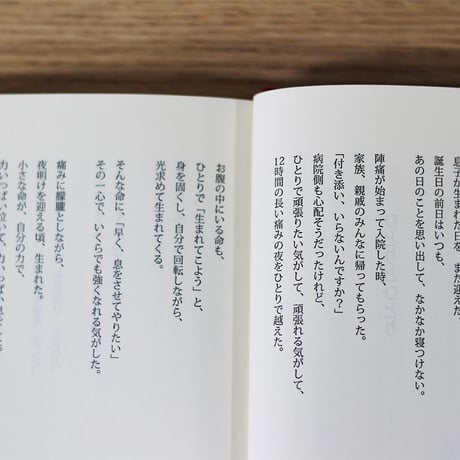 息子が生まれた日を、また迎えた。
誕生日の前日はいつも、
あの日のことを思い出して、なかなか寝つけない。
陣痛が始まって入院した時、
家族、親戚のみんなに帰ってもらった。
「付き添い、いらないんですか？」
病院側も心配そうだったけれど、
ひとりで頑張りたい気がして、頑張れる気がして、
12時間の長い痛みの夜をひとりで越えた。
お腹の中にいる命も、
ひとりで「生まれてこよう」と、
身を固くし、自分で回転しながら、
光求めて生まれてくる。
そんな命に、「早く、息をさせてやりたい」
その一心で、いくらでも強くなれる気がした。
痛みに朦朧としながら、
夜明けを迎える頃、生まれた。
小さな命が、自分の力で、
力いっぱい泣いて、力いっぱい息をした。